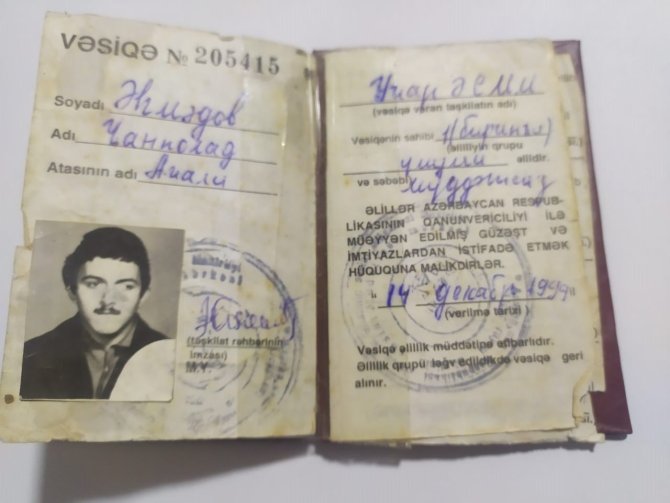 VƏSİQƏ № 205415
Soyadı Әһмәдов
Adı Ҹанполад
Atasının adı
(təşkilat rəhbərinin
imzası)
M.Y.
Уҹар ӘСММ
(vəsiqə verən təşkilatın adı)
Vəsiqənin sahibi I (биринҹи)
əlilliyin qrupu
үмуми əlildir.
və səbəbi
ƏLİLLƏR AZƏRBAYCAN RESPUB-
LİKASININ QANUNVERİCİLİYİ İLƏ
MÜƏYYƏN EDİLMİŞ GÜZƏŞT VƏ
İMTİYAZLARDAN İSTİFADƏ ETMƏK
HÜQUQUNA MALİKDİRLƏR.
" 14 " декабр 1994
(verilmə tarixi)
Vəsiqə əlillik müddətinə etibarlıdır.
Əlillik qrupu ləğv edildikdə vəsiqə geri
alınır.